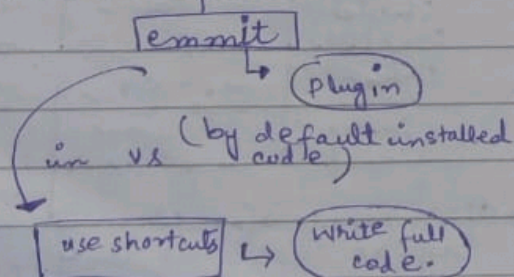 emmit
Plugin
(by default installed
in vs code)
use shortcuts
Write full
code.